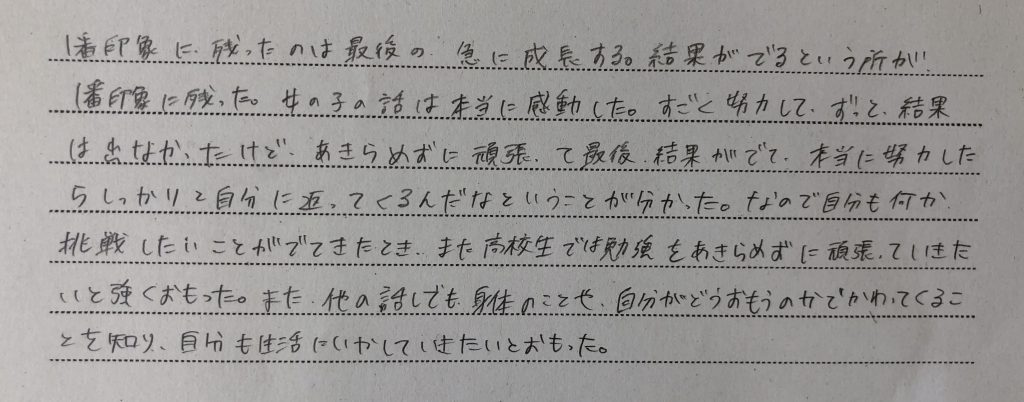 1番印象に残ったのは最後の、急に成長する。結果がでるという所が、
1番印象に残った。女の子の話は本当に感動した。すごく努力して、ずっと、結果
は出なかったけど、あきらめずに頑張って最後、結果がでて、本当に努力した
らしっかりと自分に返ってくるんだなということが分かった。なので自分も何か
挑戦したいことがでてきたとき、また高校生では勉強をあきらめずに頑張っていきた
いと強くおもった。また、他の話しでも、身体のことや、自分がどうおもうのかでかわってくるこ
とを知り、自分も生活にいかしていきたいとおもった。